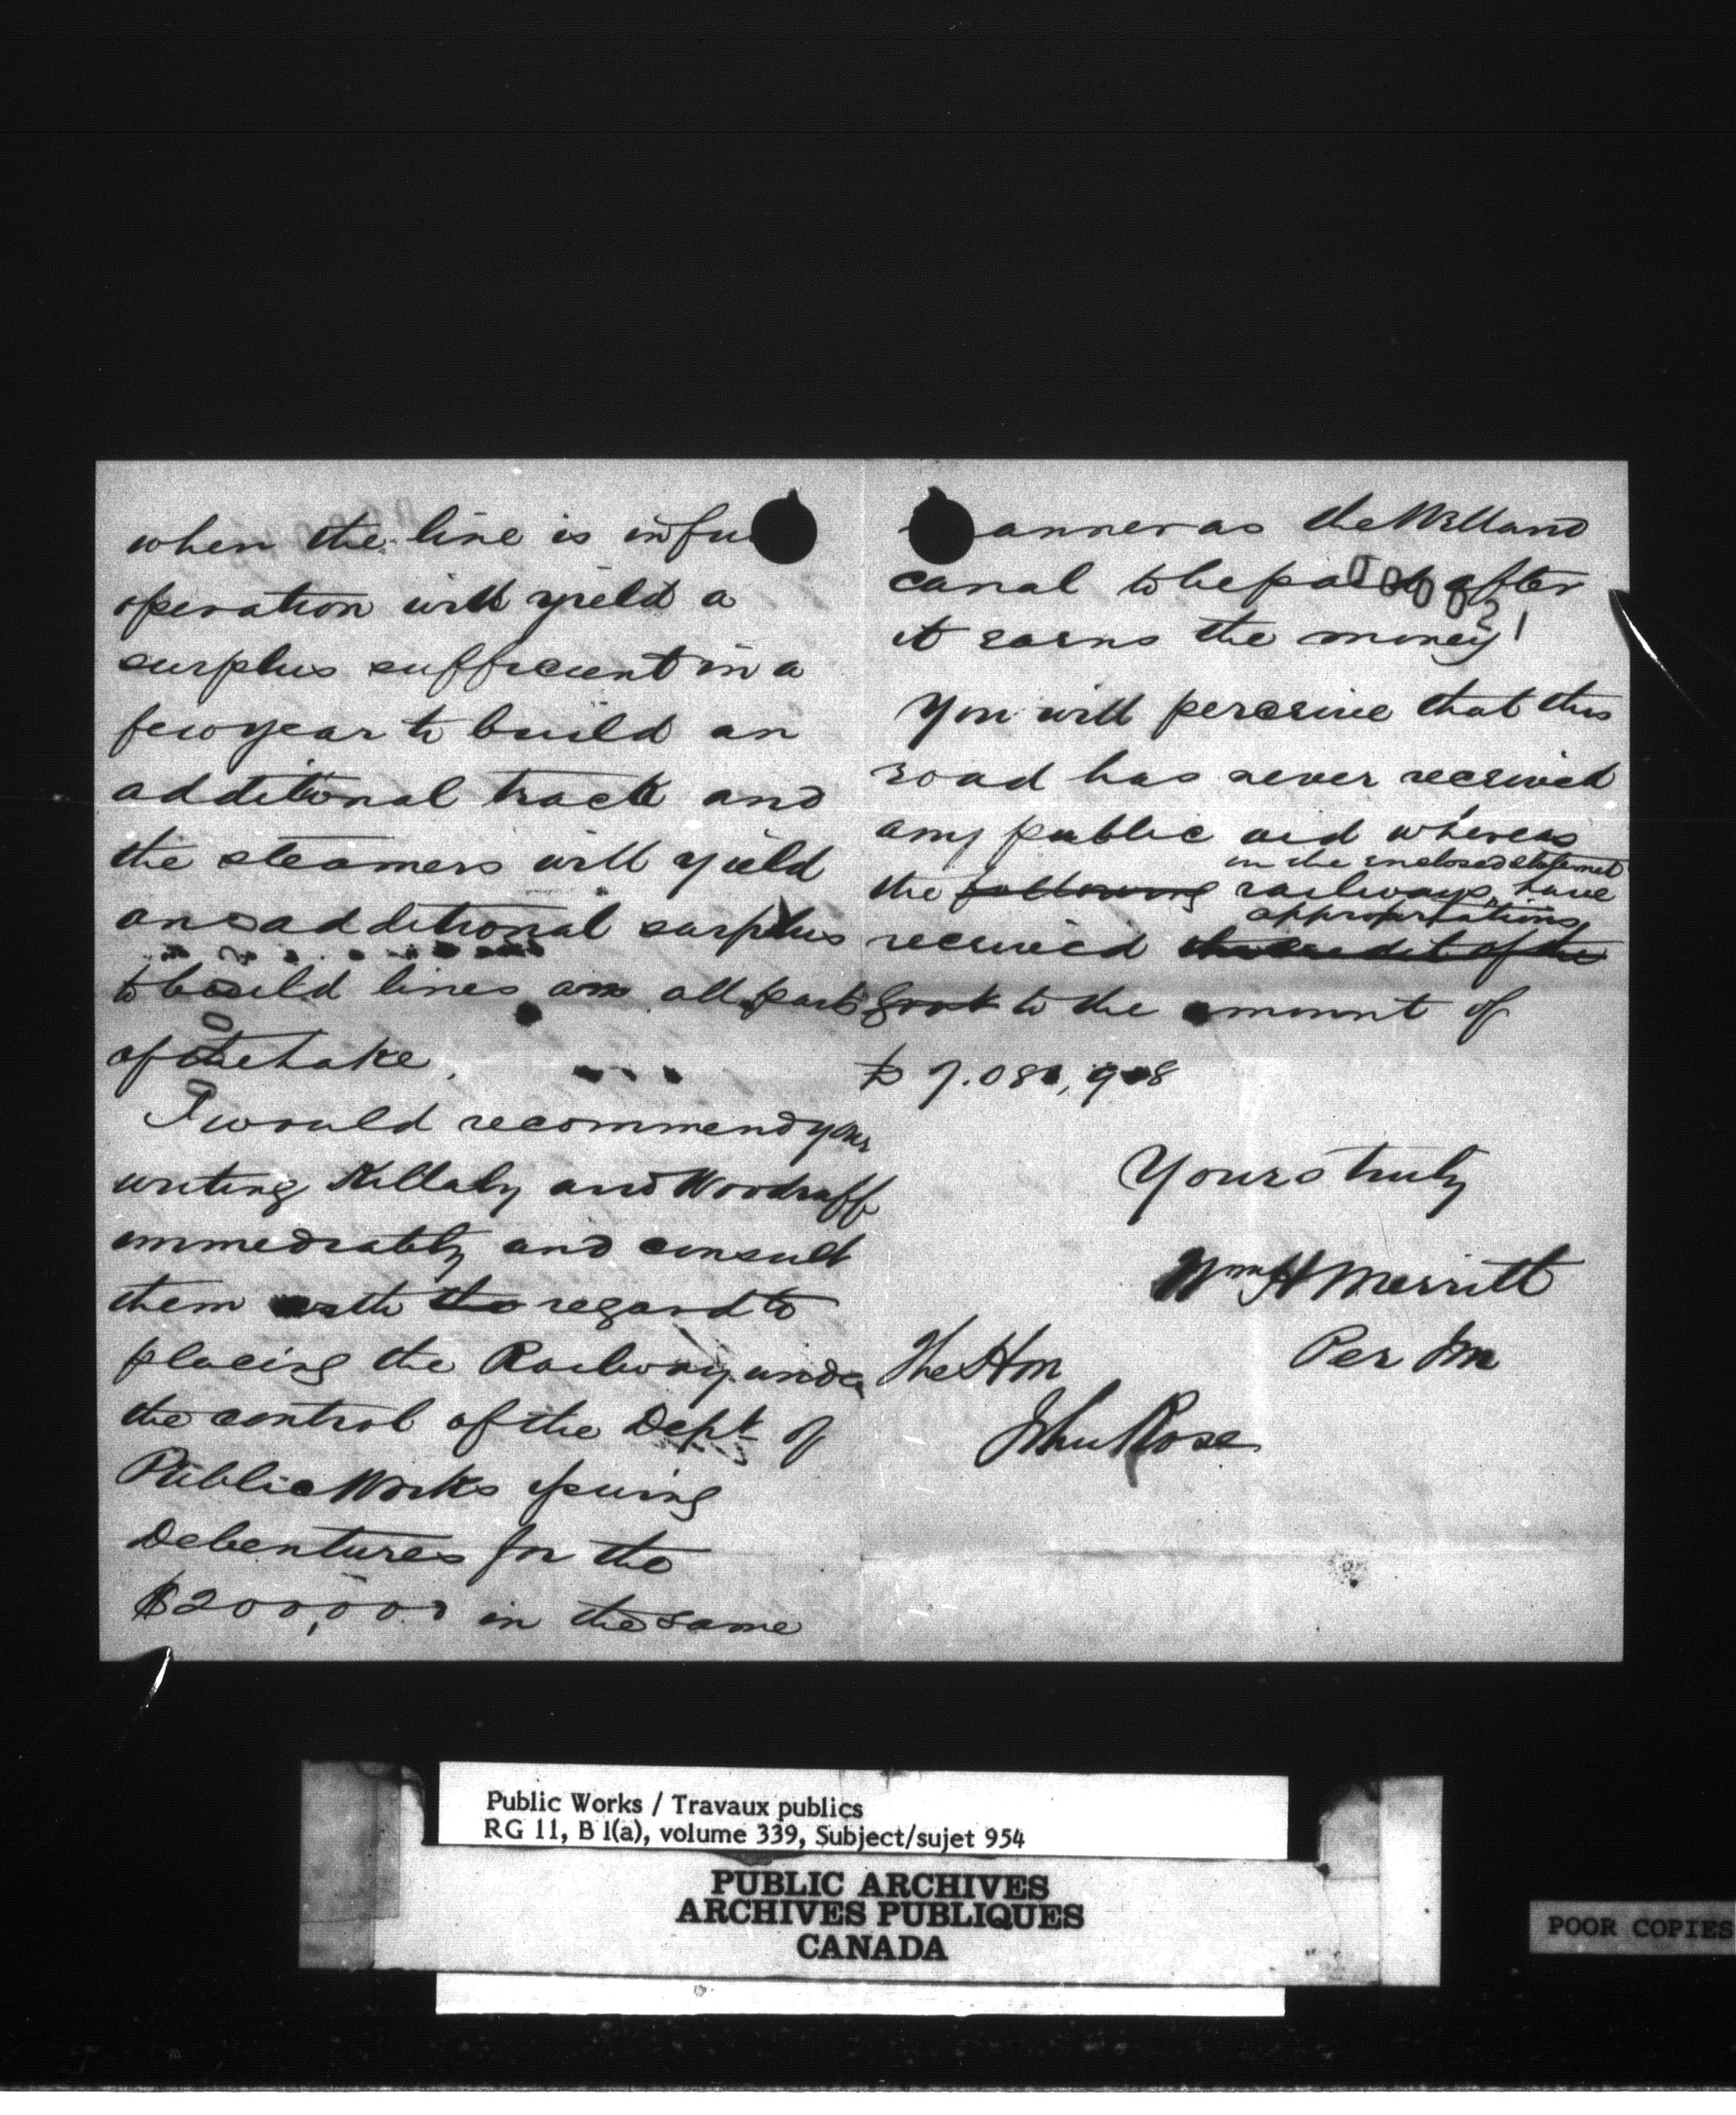 when the line is in fu
operation will yield a
surplus sufficient in a
few year to build an
additional track and
the steamers will yield
an additional surplus
to build lines on all parts
of the Lake.
I would recommend your
writing Killaly and Woodruff
immediately and consult
them with the regard to
placing the Railway under
the control of the Dept of
Public Works issuing
Debentures for the
$200,000 in the same
anner as the Welland
canal to be paid after
it earns the money
00002 1
You will perceive that this
road has never received
any public aid whereas
in the enclosed statement
the following railways, have
appropriations
received the credit of the
to the amount of
$ 7.08
Yours truly
Wm H Merritt
Per
The Hon
John Rose
Public Works / Travaux publics
RG 11, B 1(a), volume 339, Subject/sujet 954
PUBLIC ARCHIVES
ARCHIVES PUBLIQUES
CANADA
POOR COPIES